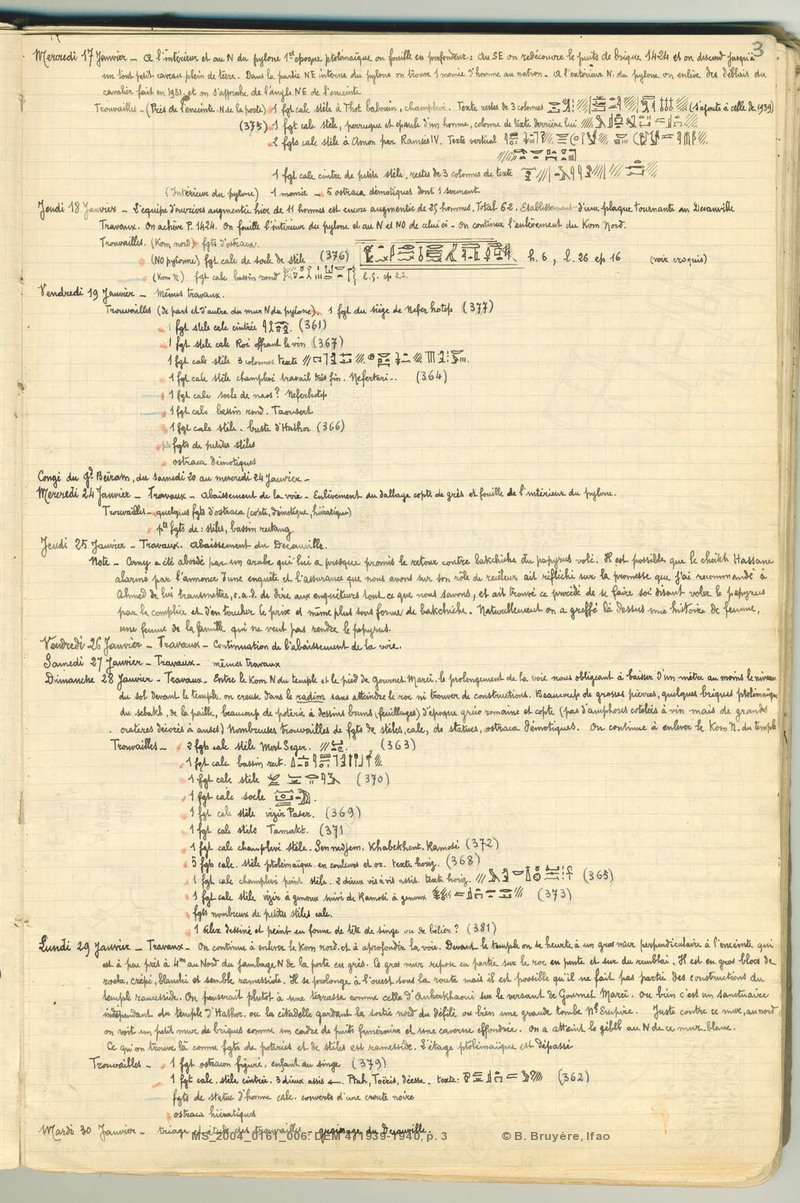 3
Mercredi 17 Janvier - A l'intérieur et au N du pylone 1re époque ptolémaïque on fouille en profondeur: Au SE on redécouvre le puits de brique 1424 et on descend jusqu'à
un tout petit caveau plein de terre. Dans la partie NE interne du pylone on trouve 1 momie d'homme au natron. A l'extérieur N. du pylone on enlève des déblais du
cavalier fait en 1931 et on s'approche de l'angle NE de l'enceinte
Trouvailles - (Près de l'enceinte. N de la porte) 1 fgt calc stèle à Thot babouin, champlevé. Texte restes de 3 colonnes (s'ajoute à celle de 1939)
(375) 1 fgt calc stèle, perruque et épaule d'un homme, colonne de texte derrière lui
2 fgts calc stèle à Amon par Ramsès IV. Texte vertical
1 fgt calc cintre de petite stèle, restes de 3 colonnes de texte
(Intérieur du pylone) 1 momie - 5 ostraca démotiques dont 1 serment
Jeudi 18 Janvier - L'équipe d'ouvriers augmentée hier de 11 hommes est encore augmentée de 25 hommes. Total 62. Etablissement d'une plaque tournante au Decauville
Travaux. On achève P. 1424. On fouille l'intérieur du pylone et au N et NO de celui ci - On continue l'enlèvement du Kom Nord.
Trouvailles. (Kom nord) fgts d'ostraca.
(NO pylone) fgt calc de socle de stèle (376) h. 6, l. 26 ep 16 (voir croquis)
(Kom N) fgt calc bassin rond
Vendredi 19 Janvier - Mêmes travaux.
Trouvailles (de part et d'autre du mur N du pylone). 1 fgt du siège de Nefer hotep (377)
1 fgt stèle calc cintrée (361)
1 fgt stèle calc Roi offrant le vin (367)
1 fgt calc stèle 3 colonnes texte
1 fgt calc stèle champlevé travail très fin. Nefertari.. (364)
1 fgt calc socle de naos? Neferhotep
1 fgt calc bassin rond. Taousert
1 fgt calc stèle. buste d'Hathor (366)
fgts de petites stèles
ostraca démotiques
Congé du gd Beïram, du samedi 20 au mercredi 24 Janvier -
Mercredi 24 Janvier - Travaux - Abaissement de la voie - Enlèvement du dallage copte de grès et fouille de l'intérieur du pylone.
Trouvailles - quelques fgts d'ostraca (copte, démotique, hiératique)
pts fgts de: stèles, bassin rectang.
Jeudi 25 Janvier - Travaux. Abaissement du Decauville.
Note - Cerny a été abordé par un arabe qui lui a presque promis le retour contre bakchiche du papyrus volé. Il est possible que le cheikh Hassane
alarmé par l'annonce d'une enquête et l'assurance que nous avons sur son rôle de recéleur ait réfléchi sur la promesse que j'ai recommandé à
Ahmad de lui transmettre, c.a.d. de dire aux enquêteurs tout ce que nous savons, et ait trouvé ce procédé de se faire soi disant voler le papyrus
par la complice et d'en toucher le prix et même plus sous forme de bakchiche. Naturellement on a greffé là dessus une histoire de femme,
une femme de la famille qui ne veut pas rendre le papyrus.
Vendredi 26 Janvier - Travaux - Continuation de l'abaissement de la voie.
Samedi 27 Janvier - Travaux - mêmes travaux
Dimanche 28 Janvier - Travaux - Entre le Kom N du temple et le pied de Gournet Mareï. le prolongement de la voie nous obligeant à baisser d'un mètre au moins le niveau
du sol devant le temple, on creuse dans le radim sans atteindre le roc ni trouver de constructions. Beaucoup de grosses pierres, quelques briques ptolémaïques
du sebakh, de la paille, beaucoup de poterie à dessins bruns (feuillages) d'époque gréco romaine et copte (pas d'amphores cotelées à vin mais de grands
cratères décorés à anses) Nombreuses trouvailles de fgts de stèles, calc, de statues, ostraca démotiques. On continue à enlever le Kom N. du temple
Trouvailles - 2 fgts calc stèle Mert Seger. (363)
1 fgt calc bassin rect.
1 fgt calc stèle (370)
1 fgt calc socle
1 fgt calc stèle vizir Paser. (369)
1 fgt calc stèle Tamakt. (371
1 fgt calc champlevé stèle. Sennedjem. Khabekhent. Ramosé (372)
5 fgts calc. stèle ptolémaïque en couleurs et or. texte horiz. (368)
1 fgt calc champlevé peint stèle. 2 dieux vis à vis assis. texte horiz. (365)
1 fgt calc stèle vizir à genoux suivi de Ramosé à genoux (373)
fgts nombreux de petites stèles calc.
1 silex dessiné et peint en forme de tête de singe ou de bélier? (381)
Lundi 29 Janvier - Travaux - On continue à enlever le Kom nord et à approfondir la voie. Devant le temple on se heurte à un gros mur perpendiculaire à l'enceinte qui
est à peu près à 4m au Nord du jambage N de la porte en grès. Ce gros mur repose en partie sur le roc en pente et sur du remblai. Il est en gros blocs de
roche, crépi, blanchi et semble ramesside. Il se prolonge à l'ouest sous la route mais il est possible qu'il ne fait pas partie des constructions du
temple ramesside. On penserait plutôt à une terrasse comme celle d'Anherkhaoui sur le versant de Gournet Mareï. Ou bien c'est un sanctuaire
indépendant du temple d'Hathor, ou la citadelle gardant la sortie nord du défilé ou bien une grande tombe Nel Empire. Juste contre ce mur, au nord
on voit un petit mur de briques comme un cadre de puits funéraire et une caverne effondrée. On a atteint le gebel au N de ce mur blanc.
Ce qu'on trouve là comme fgts de poteries et de stèles est ramesside. L'étage ptolémaïque est dépassé
Trouvailles - 1 fgt ostracon figuré, enfant au singe (379)
1 fgt calc. stèle cintrée. 3 dieux assis ←. Ptah, Toëris, déesse. texte: (362)
fgts de statue d'homme calc. couverts d'une croute noire
ostraca hiératiques
Mardi 30 Janvier - triage et étude des trouvailles - graissage du Decauville
MS_2004_0161_006. DEM 47 1939-1940, p. 3 © B. Bruyère, Ifao